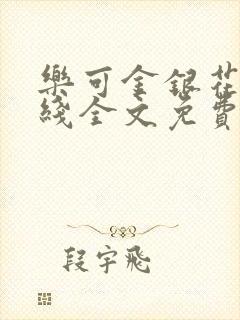 樂可金銀花
綫全文免費
段宇飛